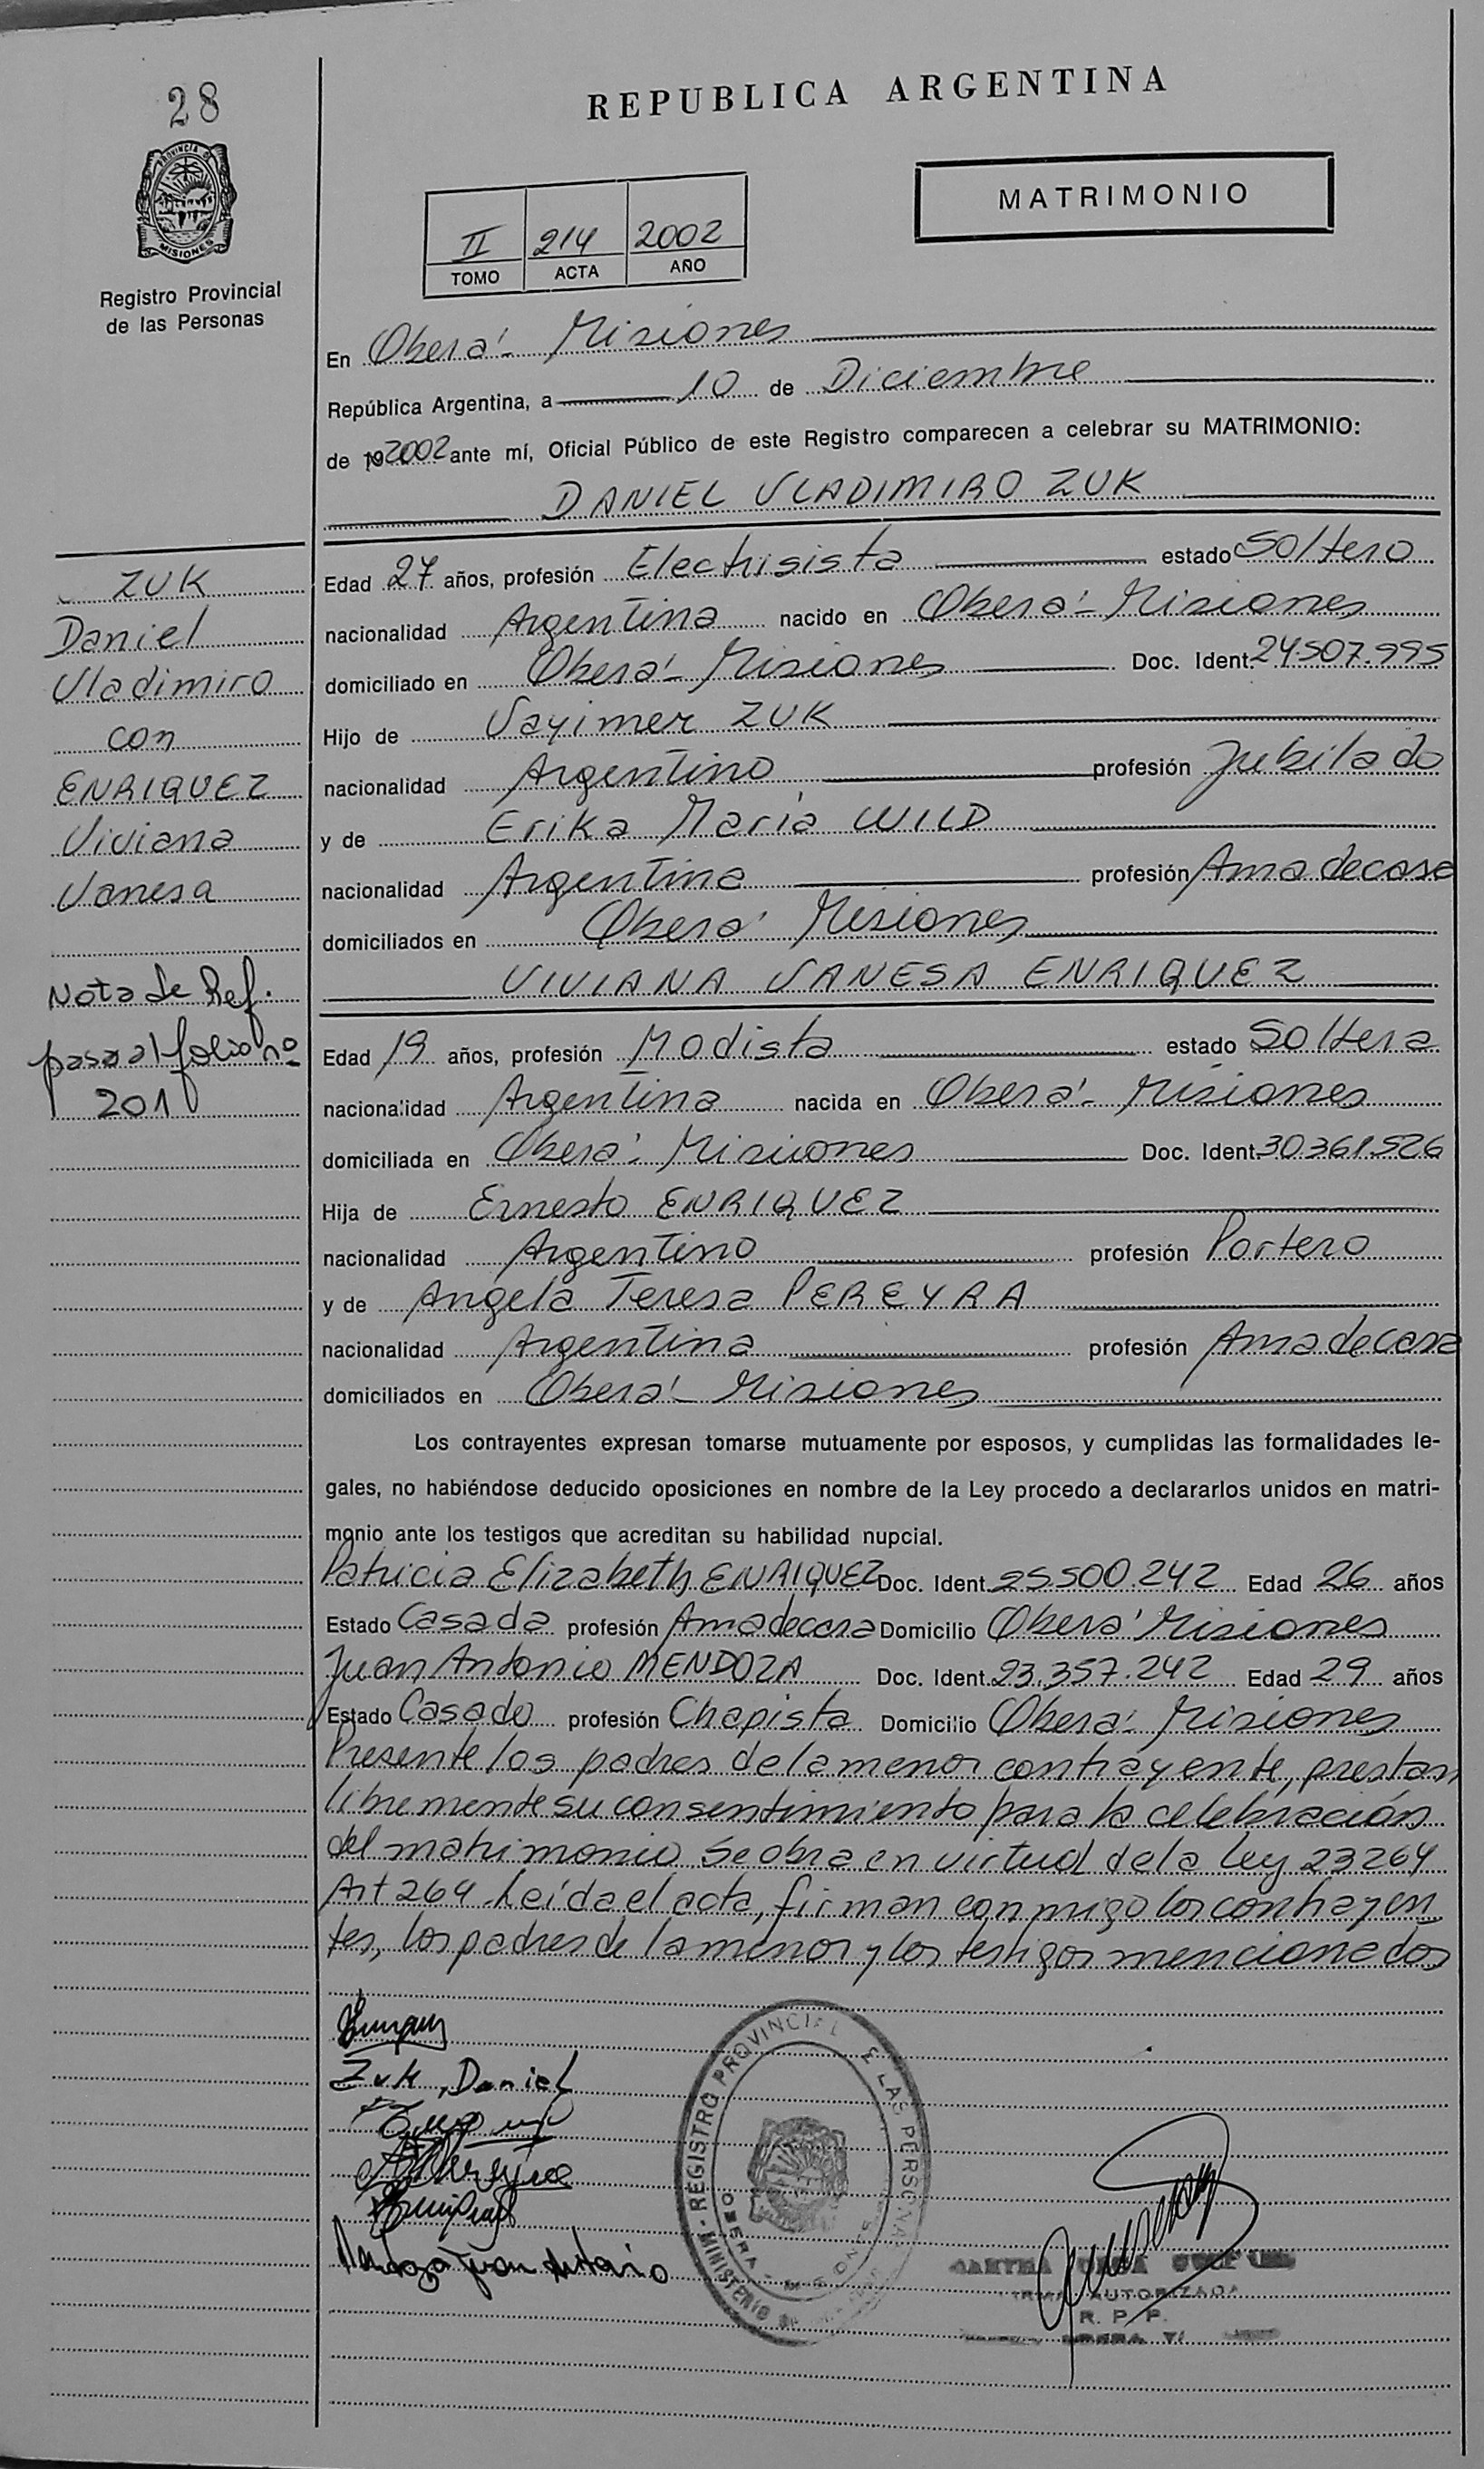 28
REPUBLICA ARGENTINA
PROVINCIA DE
MISIONES
MATRIMONIO
II 214 2002
TOMO ACTA AÑO
Registro Provincial
de las Personas
En Oberá - Misiones
República Argentina, a 10 de Diciembre
de 19 2002 ante mí, Oficial Público de este Registro comparecen a celebrar su MATRIMONIO:
DANIEL VLADIMIRO ZUK
ZUK
Daniel
Vladimiro
con
ENRIQUEZ
Viviana
Vanesa
Nota de Ref.
pasa al folio nº
201
Edad 27 años, profesión Electrisista estado Soltero
nacionalidad Argentina nacido en Oberá - Misiones
domiciliado en Oberá - Misiones Doc. Ident. 24.507.995
Hijo de Vayimer ZUK
nacionalidad Argentino profesión Jubilado
y de Erika María WILD
nacionalidad Argentina profesión Ama de casa
domiciliados en Oberá Misiones
VIVIANA VANESA ENRIQUEZ
Edad 19 años, profesión Modista estado Soltera
nacionalidad Argentina nacida en Oberá - Misiones
domiciliada en Oberá - Misiones Doc. Ident. 30.361.526
Hija de Ernesto ENRIQUEZ
nacionalidad Argentino profesión Portero
y de Angela Teresa PEREYRA
nacionalidad Argentina profesión Ama de casa
domiciliados en Oberá - Misiones
Los contrayentes expresan tomarse mutuamente por esposos, y cumplidas las formalidades le-
gales, no habiéndose deducido oposiciones en nombre de la Ley procedo a declararlos unidos en matri-
monio ante los testigos que acreditan su habilidad nupcial.
Patricia Elizabeth ENRIQUEZ Doc. Ident. 25.500.242 Edad 26 años
Estado Casada profesión Ama de casa Domicilio Oberá Misiones
Juan Antonio MENDOZA Doc. Ident. 23.357.242 Edad 29 años
Estado Casado profesión Chapista Domicilio Oberá - Misiones
Presente los padres de la menor contrayente, prestan
libremente su consentimiento para la celebración
del matrimonio. Se obra en virtud de la Ley 23264
Art 264. Leída el acta, firman conmigo los contrayen
tes, los padres de la menor y los testigos mencionados
Zuk, Daniel
Mendoza Juan Antonio
REGISTRO PROVINCIAL E LAS PERSONAS
MINISTERIO
OBERA
AUTORIZADA
R. P. P.